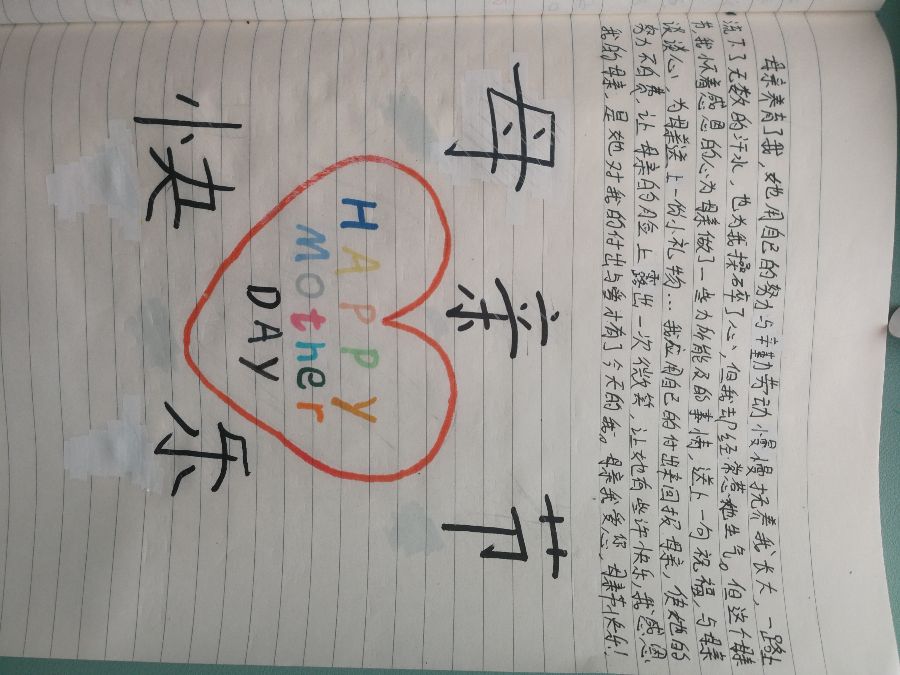 母亲养育了我，她用自己的努力与辛勤劳动慢慢抚养我长大，一路上
流下了无数的汗水，也为我操碎了心，但我却经常惹她生气。但这个母亲
节，我怀着感恩的心为母亲做了一些力所能及的事情，送上一句祝福，与母亲
谈谈心，为母亲送上一份小礼物…我应用自己的付出来回报母亲，使她的
努力不白费，让母亲的脸上露出一次微笑，让她有些许快乐，我感恩
我的母亲，是她对我的付出与当才有了今天的我。母亲我爱你，母亲节快乐！
母亲节
HAPPY
Mother
DAY
快乐